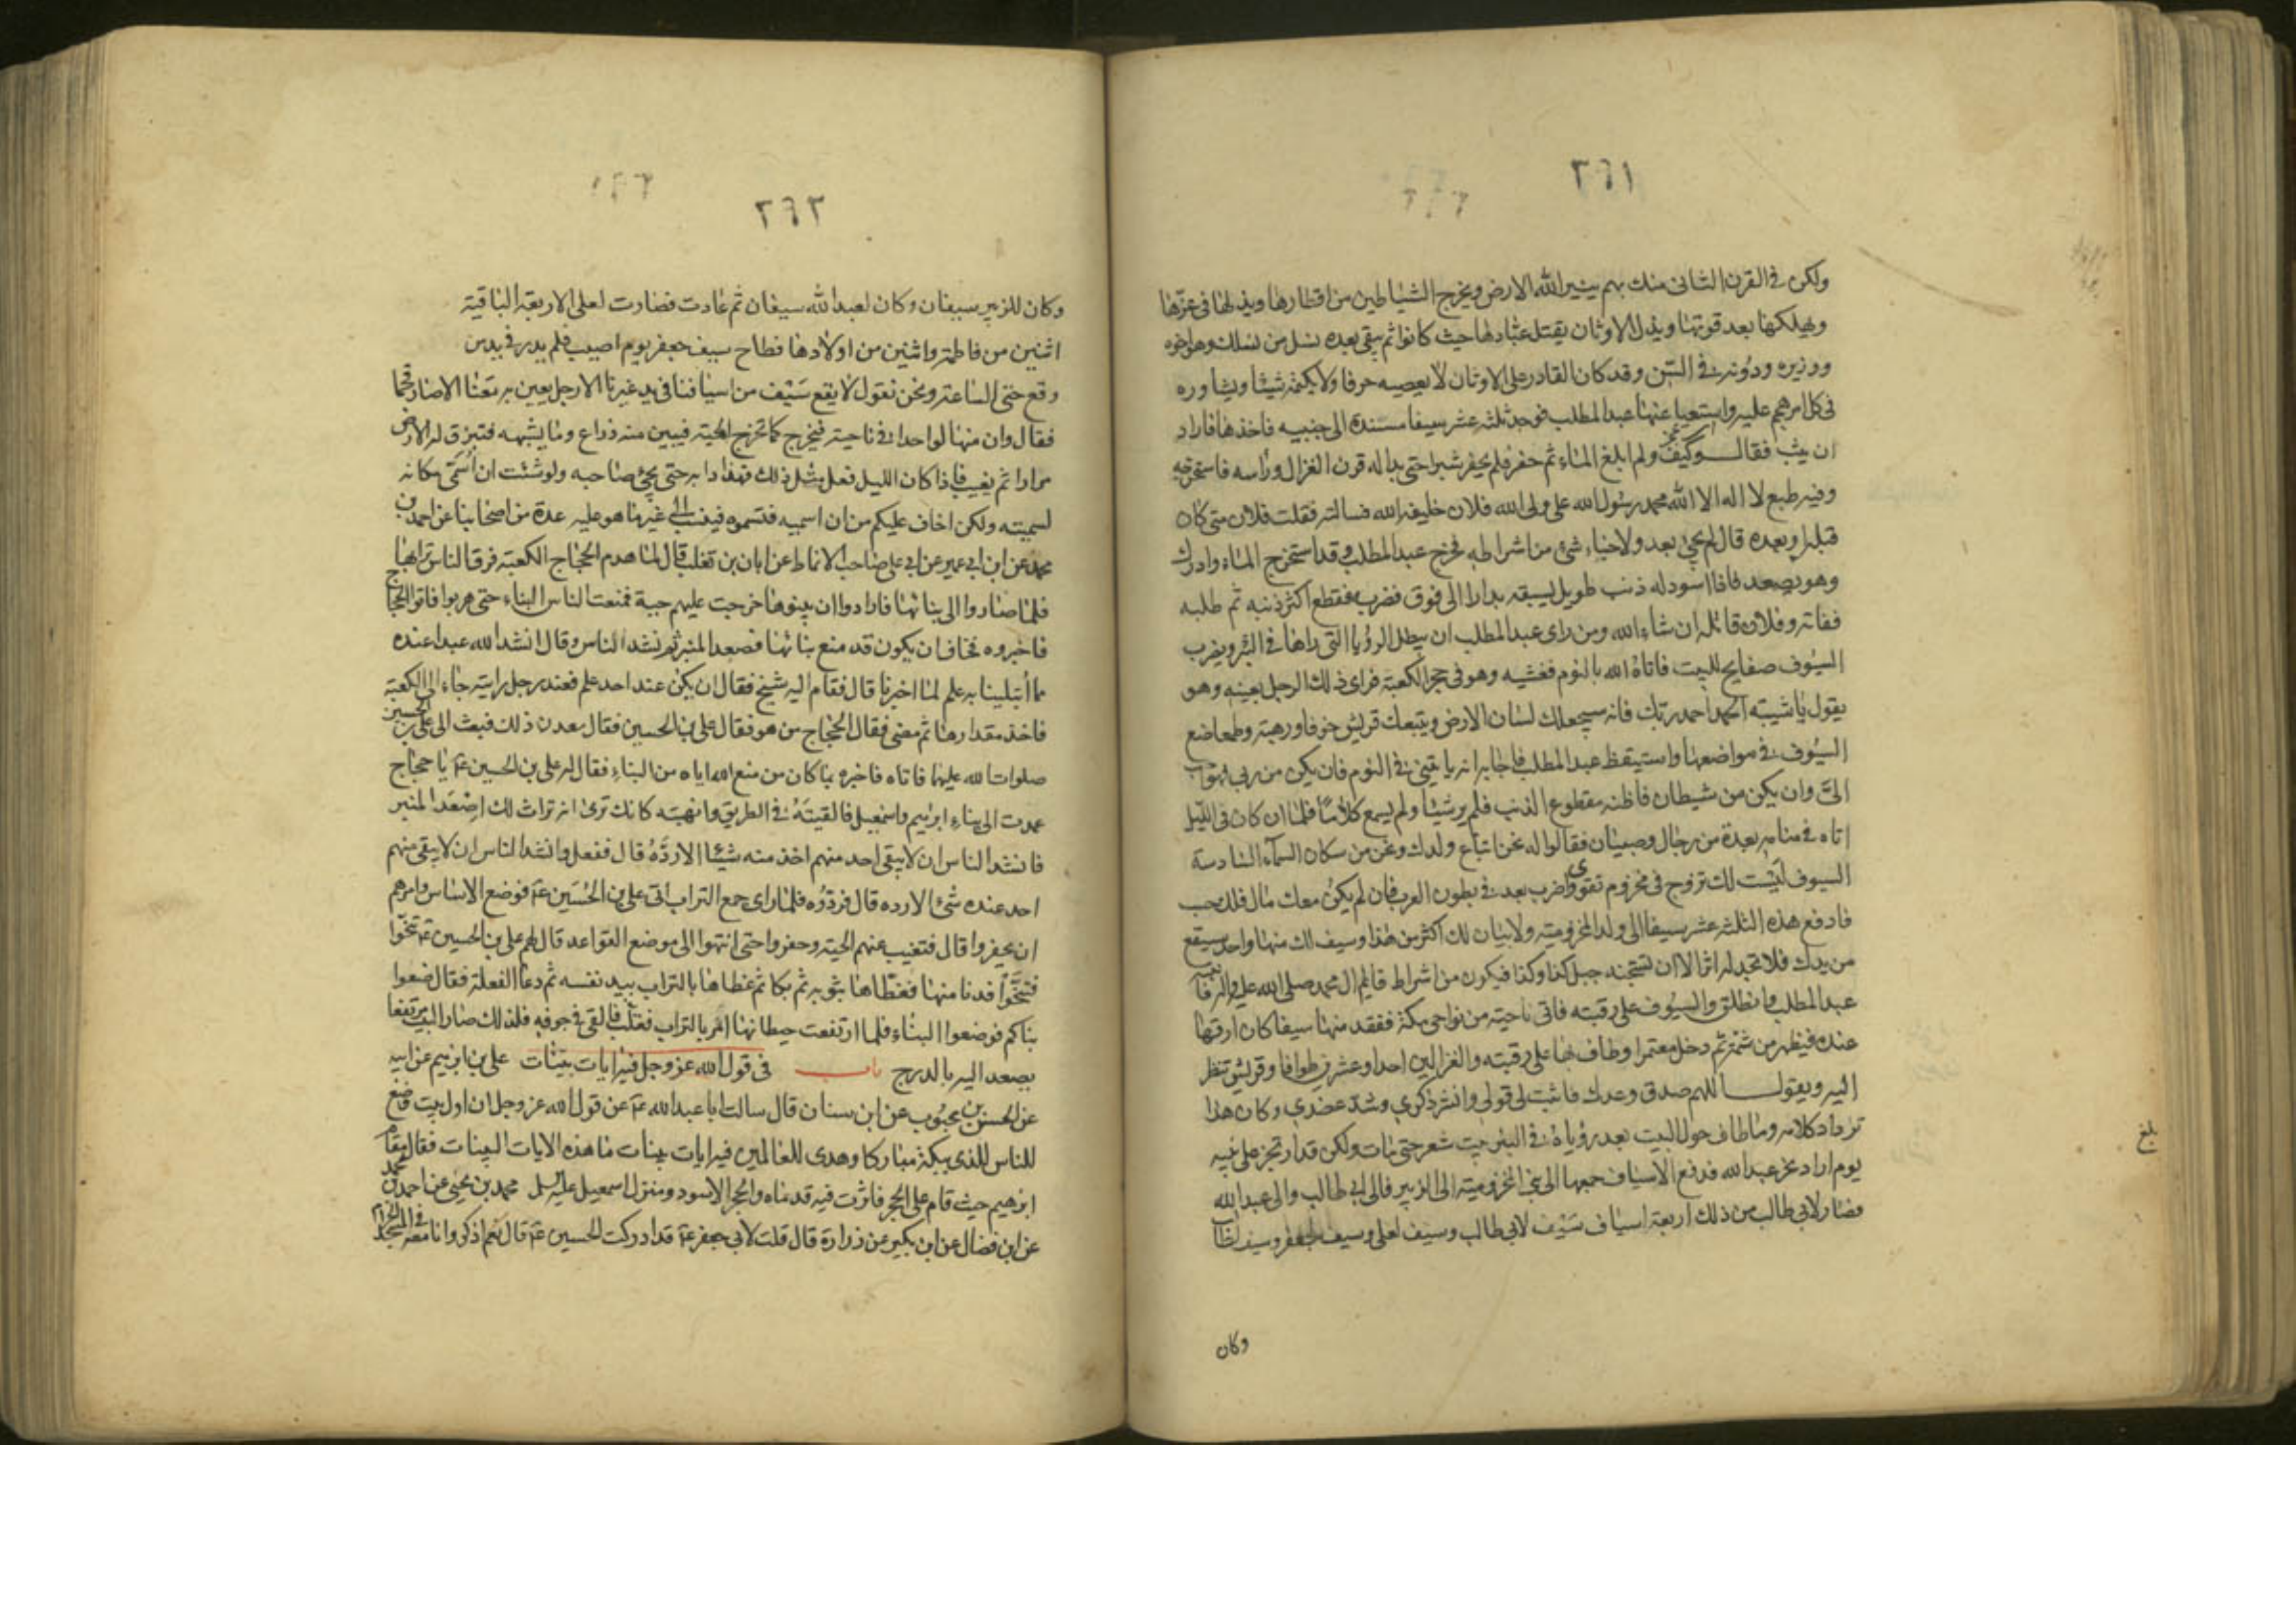 ٢٦١
ولكن في القرن الثاني منك بهم ينير الله الارض ويخرج الشياطين من اقطارها ويذلها في عزها
ويهلكها بعد قوتها ويذل الاوثان يقتل عبادها حيث كانوا ثم يبقى بعده نسل من نسلك وهو اخوه
ووزيره ودونه في السن وقد كان القادر على الاوثان لا يعصيه حرفا ولا يكتمه شيئا ويشاوره
في كل امر هجم عليه واستعيا عنها عبد المطلب فوجد ثلثة عشر سيفا مسندة الى جنبيه فاخذها فاراد
ان يثب فقال وكيف ولم ابلغ الماء ثم حفر فلم يحفر شبرا حتى بدا له قرن الغزال وراسه فاستخرجه
وفيه طبع لا اله الا الله محمد رسول الله علي ولي الله فلان خليفة الله فسالته فقلت فلان متى كان
قبله او بعده قال لم يجئ بعد ولا جاء شئ من اشراطه فخرج عبد المطلب وقد استخرج الماء وادرك
وهو يصعد فاذا اسود له ذنب طويل يسبقه بدارا الى فوق فضربه فقطع اكثر ذنبه ثم طلبه
ففاته وفلان قاتله ان شاء الله ومن راى عبد المطلب ان يبطل الرؤيا التي راها في البئر ويضرب
السيوف صفايح للبيت فاتاه الله بالنوم فغشيه وهو في حجر الكعبة فراى ذلك الرجل بعينه وهو
يقول يا شيبة الحمد احمد ربك فانه سيجعلك لسان الارض ويتبعك قريش خوفا ورهبة وطمعا ضع
السيوف في مواضعها واستيقظ عبد المطلب فاجابه انه ياتيني في النوم فان يكن من ربي فهو احب
الي وان يكن من شيطان فاظنه مقطوع الذنب فلم ير شيئا ولم يسمع كلاما فلما ان كان في الليل
اتاه في منامه بعدة من رجال وصبيان فقالوا له نحن اتباع ولدك ونحن من سكان السماء السادسة
السيوف ليست لك تزوج في مخزوم تقوى واضرب بعد في بطون العرب فان لم يكن معك مال فلك حسب
فادفع هذه الثلثة عشر سيفا الى ولد المخزومية ولا يبان لك اكثر من هذا وسيف لك منها واحد سيقع
من يدك فلا تجد له اثرا الا ان تستجنه جبل كذا وكذا فيكون من اشراط قايم ال محمد صلى الله عليه واله فانتبه
عبد المطلب فانطلق والسيوف على رقبته فاتى ناحية من نواحي مكة ففقد منها سيفا كان ارقها
عنده فيظهر من ثم ثم دخل معتمرا وطاف بها على رقبته والغزالين احدا وعشرين طوافا وقريش تنظر
اليه ويقول اللهم صدق وعدك فاثبت لي قولي وانشر ذكري وشد عضدي وكان هذا
ترداد كلامه وما طاف حول البيت بعد رؤياه في البئر بيت شعر حتى مات ولكن قد ارتجز على بنيه
يوم اراد نحر عبد الله فدفع الاسياف جميعها الى بني المخزومية الى الزبير والى ابي طالب والى عبد الله
فصار لابي طالب من ذلك اربعة اسياف سيف لابي طالب وسيف لعلي وسيف لجعفر وسيف لطالب
وكان
بلغ
٢٦٢
وكان للزبير سيفان وكان لعبد الله سيفان ثم عادت فصارت لعلي الاربعة الباقية
اثنين من فاطمة واثنين من اولادها فطاح سيف جعفر يوم اصيب فلم يدر في يد من
وقع حتى الساعة ونحن نقول لا يقع سيف من اسيافنا في يد غيرنا الا رجل يعين به معنا الا صار فحما
فقال وان منها لواحدا في ناحية فيخرج كما تخرج الحية فيبين منه ذراع وما يشبهه فتبرق له الارض
مرارا ثم يغيب فاذا كان الليل فعل مثل ذلك فهذا دابه حتى يجئ صاحبه ولو شئت ان اسمي مكانه
لسميته ولكن اخاف عليكم من ان اسميه فتسموه فينسب الى غير ما هو عليه عدة من اصحابنا عن احمد بن
محمد عن ابن ابي عمير عن ابي علي صاحب الانماط عن ابان بن تغلب قال لما هدم الحجاج الكعبة فرق الناس ترابها
فلما صاروا الى بنائها فارادوا ان يبنوها خرجت عليهم حية فمنعت الناس البناء حتى هربوا فاتوا الحجاج
فاخبروه فخاف ان يكون قد منع بنائها فصعد المنبر ثم نشد الناس وقال انشد الله عبدا عنده
مما أبتلينا به علم لما اخبرنا قال فقام اليه شيخ فقال ان يكن عند احد علم فعند رجل رايته جاء الى الكعبة
فاخذ مقدارها ثم مضى فقال الحجاج من هو فقال علي بن الحسين فقال معدن ذلك فبعث الى علي بن الحسين
صلوات الله عليهما فاتاه فاخبره بما كان من منع الله اياه من البناء فقال له علي بن الحسين ع يا حجاج
عمدت الى بناء ابرهيم واسمعيل فالقيته في الطريق وانهبته كانك ترى انه تراث لك اصعد المنبر
فانشد الناس ان لا يبقى احد منهم اخذ منه شيئا الا رده قال ففعل وانشد الناس ان لا يبقى منهم
احد عنده شئ الا رده قال فردوه فلما راى جمع التراب اتى علي بن الحسين ع فوضع الاساس وامرهم
ان يحفروا قال فتغيب عنهم الحية وحفروا حتى انتهوا الى موضع القواعد قال لهم علي بن الحسين ع تنحوا
فتنحوا فدنا منها فغطاها بثوبه ثم بكا ثم غطاها بالتراب بيد نفسه ثم دعا الفعلة فقال ضعوا
بناكم فوضعوا البناء فلما ارتفعت حيطانها امر بالتراب فقلب فالقي في جوفه فلذلك صار البيت مرتفعا
يصعد اليه بالدرج باب في قول الله عز وجل فيه ايات بينات علي بن ابرهيم عن ابيه
عن الحسن بن محبوب عن ابن سنان قال سالت ابا عبد الله ع عن قول الله عز وجل ان اول بيت وضع
للناس للذي ببكة مباركا وهدى للعالمين فيه ايات بينات ما هذه الايات البينات فقال مقام
ابرهيم حيث قام على الحجر فاثرت فيه قدماه والحجر الاسود ومنزل اسمعيل عليه السلم محمد بن يحيى عن احمد بن محمد
عن ابن فضال عن ابن بكير عن زرارة قال قلت لابي جعفر ع قد ادركت الحسين ع قال نعم اذكر وانا معه في المسجد الحرام